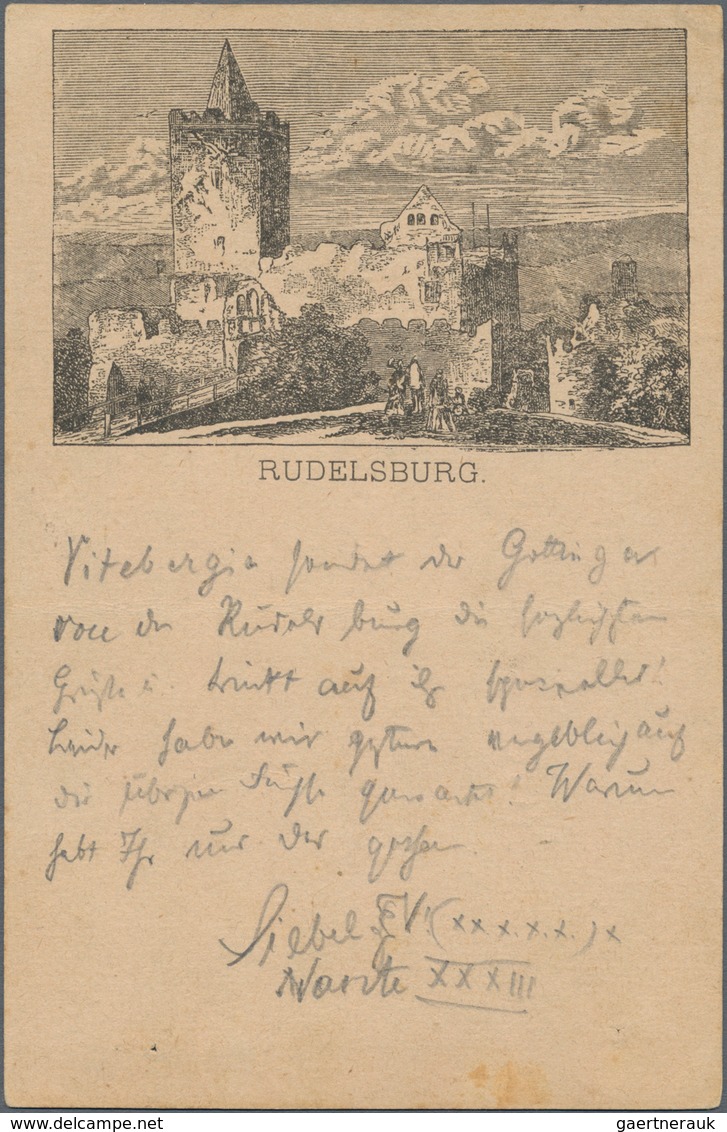 RUDELSBURG.
Vitebergia sendet der Gottinga
von der Rudelsburg die herzlichsten
Grüße u. trinkt auf ihr spezielles!
Leider haben wir gestern vergeblich auf
die übrigen Füchse gewartet! Warum
habt Ihr uns
Siebel F.V! (x x x. x. x. ) x
XXXIII
delcampe.net
gaertnerauk